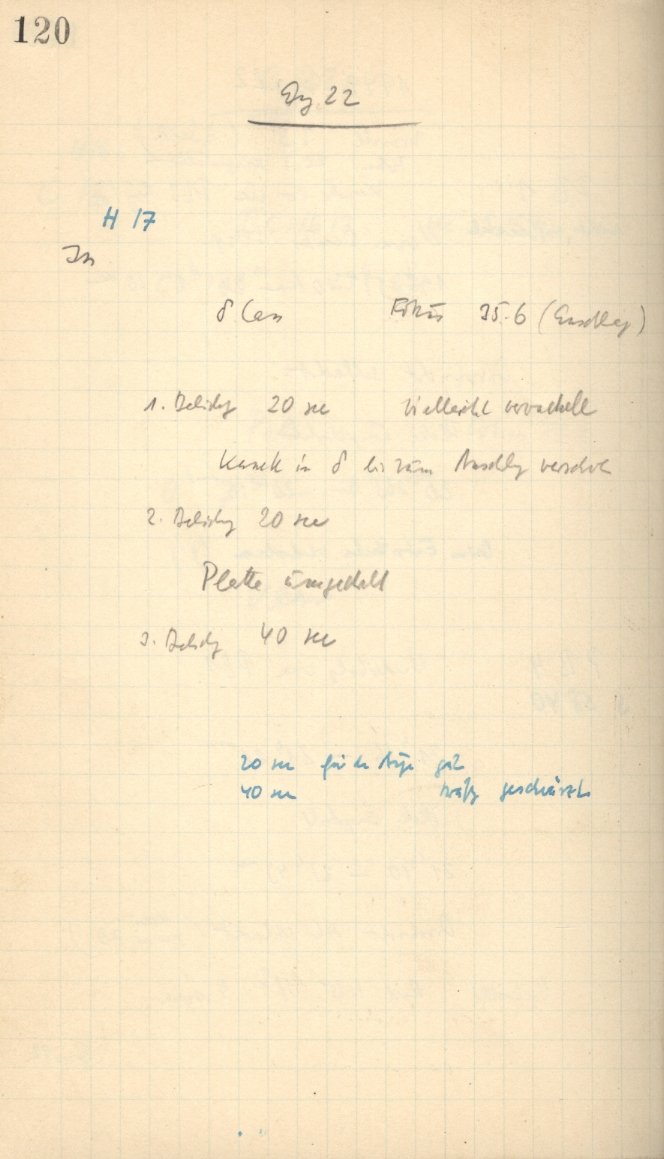 120
Dez 22
H 17
δ Cass Fokus 35.6 (Anschlag)
1. Belichtg 20 sec Vielleicht verwackelt
in δ bis zum Anschlag verschob
2. Belichtg 20 sec
Platte umgedreht
3. Belichtg 40 sec
20 sec für das Auge gut
40 sec kräftig geschwärzt